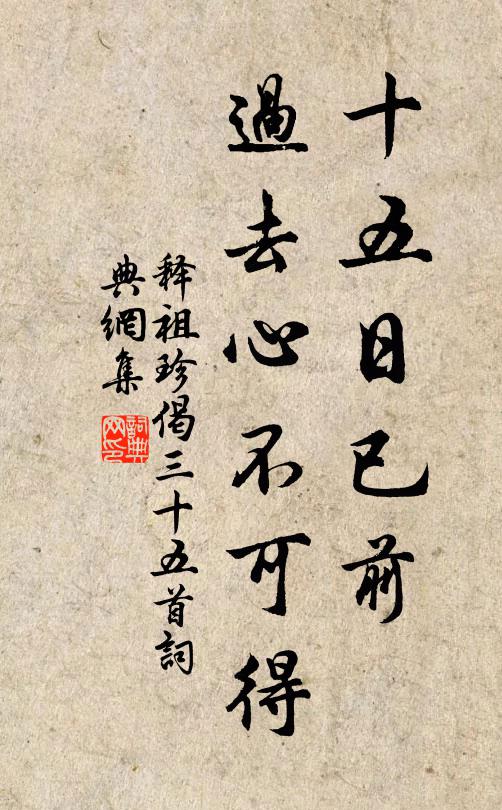 十五日已前
過去心不可得
释祖珍偈三十五首詞
典網集
詞典网印